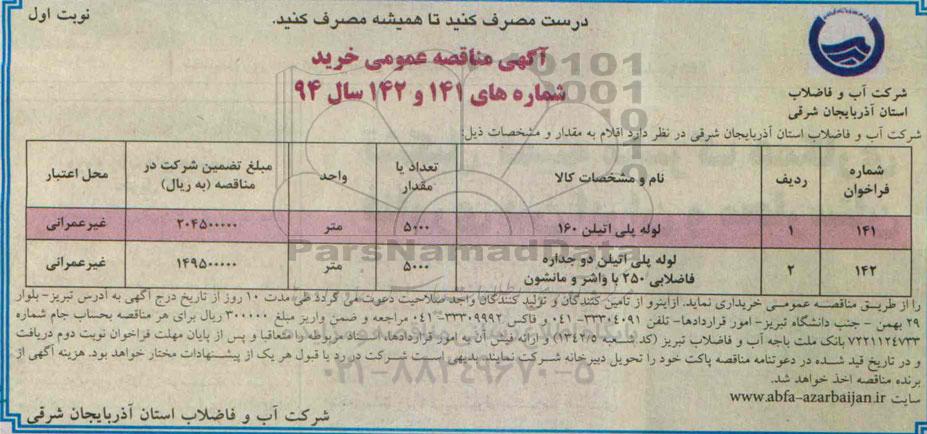 درست مصرف کنید تا همیشه مصرف کنید.
نوبت اول
آگهی مناقصه عمومی خرید
شماره های ۱۴۱ و ۱۴۲ سال ۹۴
شرکت آب و فاضلاب
استان آذربایجان شرقی
شرکت آب و فاضلاب استان آذربایجان شرقی در نظر دارد اقلام به مقدار و مشخصات ذیل:
شماره فراخوان | ردیف | نام و مشخصات کالا | تعداد یا مقدار | واحد | مبلغ تضمین شرکت در مناقصه (به ریال) | محل اعتبار
۱۴۱ | ۱ | لوله پلی اتیلن ۱۶۰ | ۵۰۰۰ | متر | ۲۰۴۵۰۰۰۰۰ | غیرعمرانی
۱۴۲ | ۲ | لوله پلی اتیلن دو جداره فاضلابی ۲۵۰ با واشر و مانشون | ۵۰۰۰ | متر | ۱۴۹۵۰۰۰۰۰ | غیرعمرانی
را از طریق مناقصه عمومی خریداری نماید. ازاینرو از تامین کنندگان و تولید کنندگان واجد صلاحیت دعوت می گردد طی مدت ۱۰ روز از تاریخ درج آگهی به آدرس تبریز- بلوار
۲۹ بهمن - جنب دانشگاه تبریز- امور قراردادها- تلفن ۳۳۳۰۴۰۹۱-۰۴۱ و فاکس ۳۳۳۰۹۹۹۲-۰۴۱ مراجعه و ضمن واریز مبلغ ۳۰۰۰۰۰ ریال برای هر مناقصه بحساب جام شماره
۷۲۲۱۱۲۴۷۳۳ بانک ملت باجه آب و فاضلاب تبریز (کد شعبه ۱۳۴۲/۵) و ارائه فیش آن به امور قراردادها، اسناد مربوطه را متعاقبا و پس از پایان مهلت فراخوان نوبت دوم دریافت
و در تاریخ قید شده در دعوتنامه مناقصه پاکت خود را تحویل دبیرخانه شرکت نمایند. بدیهی است شرکت در رد یا قبول هر یک از پیشنهادات مختار خواهد بود. هزینه آگهی از
برنده مناقصه اخذ خواهد شد.
سایت www.abfa-azarbaijan.ir
شرکت آب و فاضلاب استان آذربایجان شرقی
ParsNamadData
۰۲۱-۸۸۳۴۹۶۷۰-۵